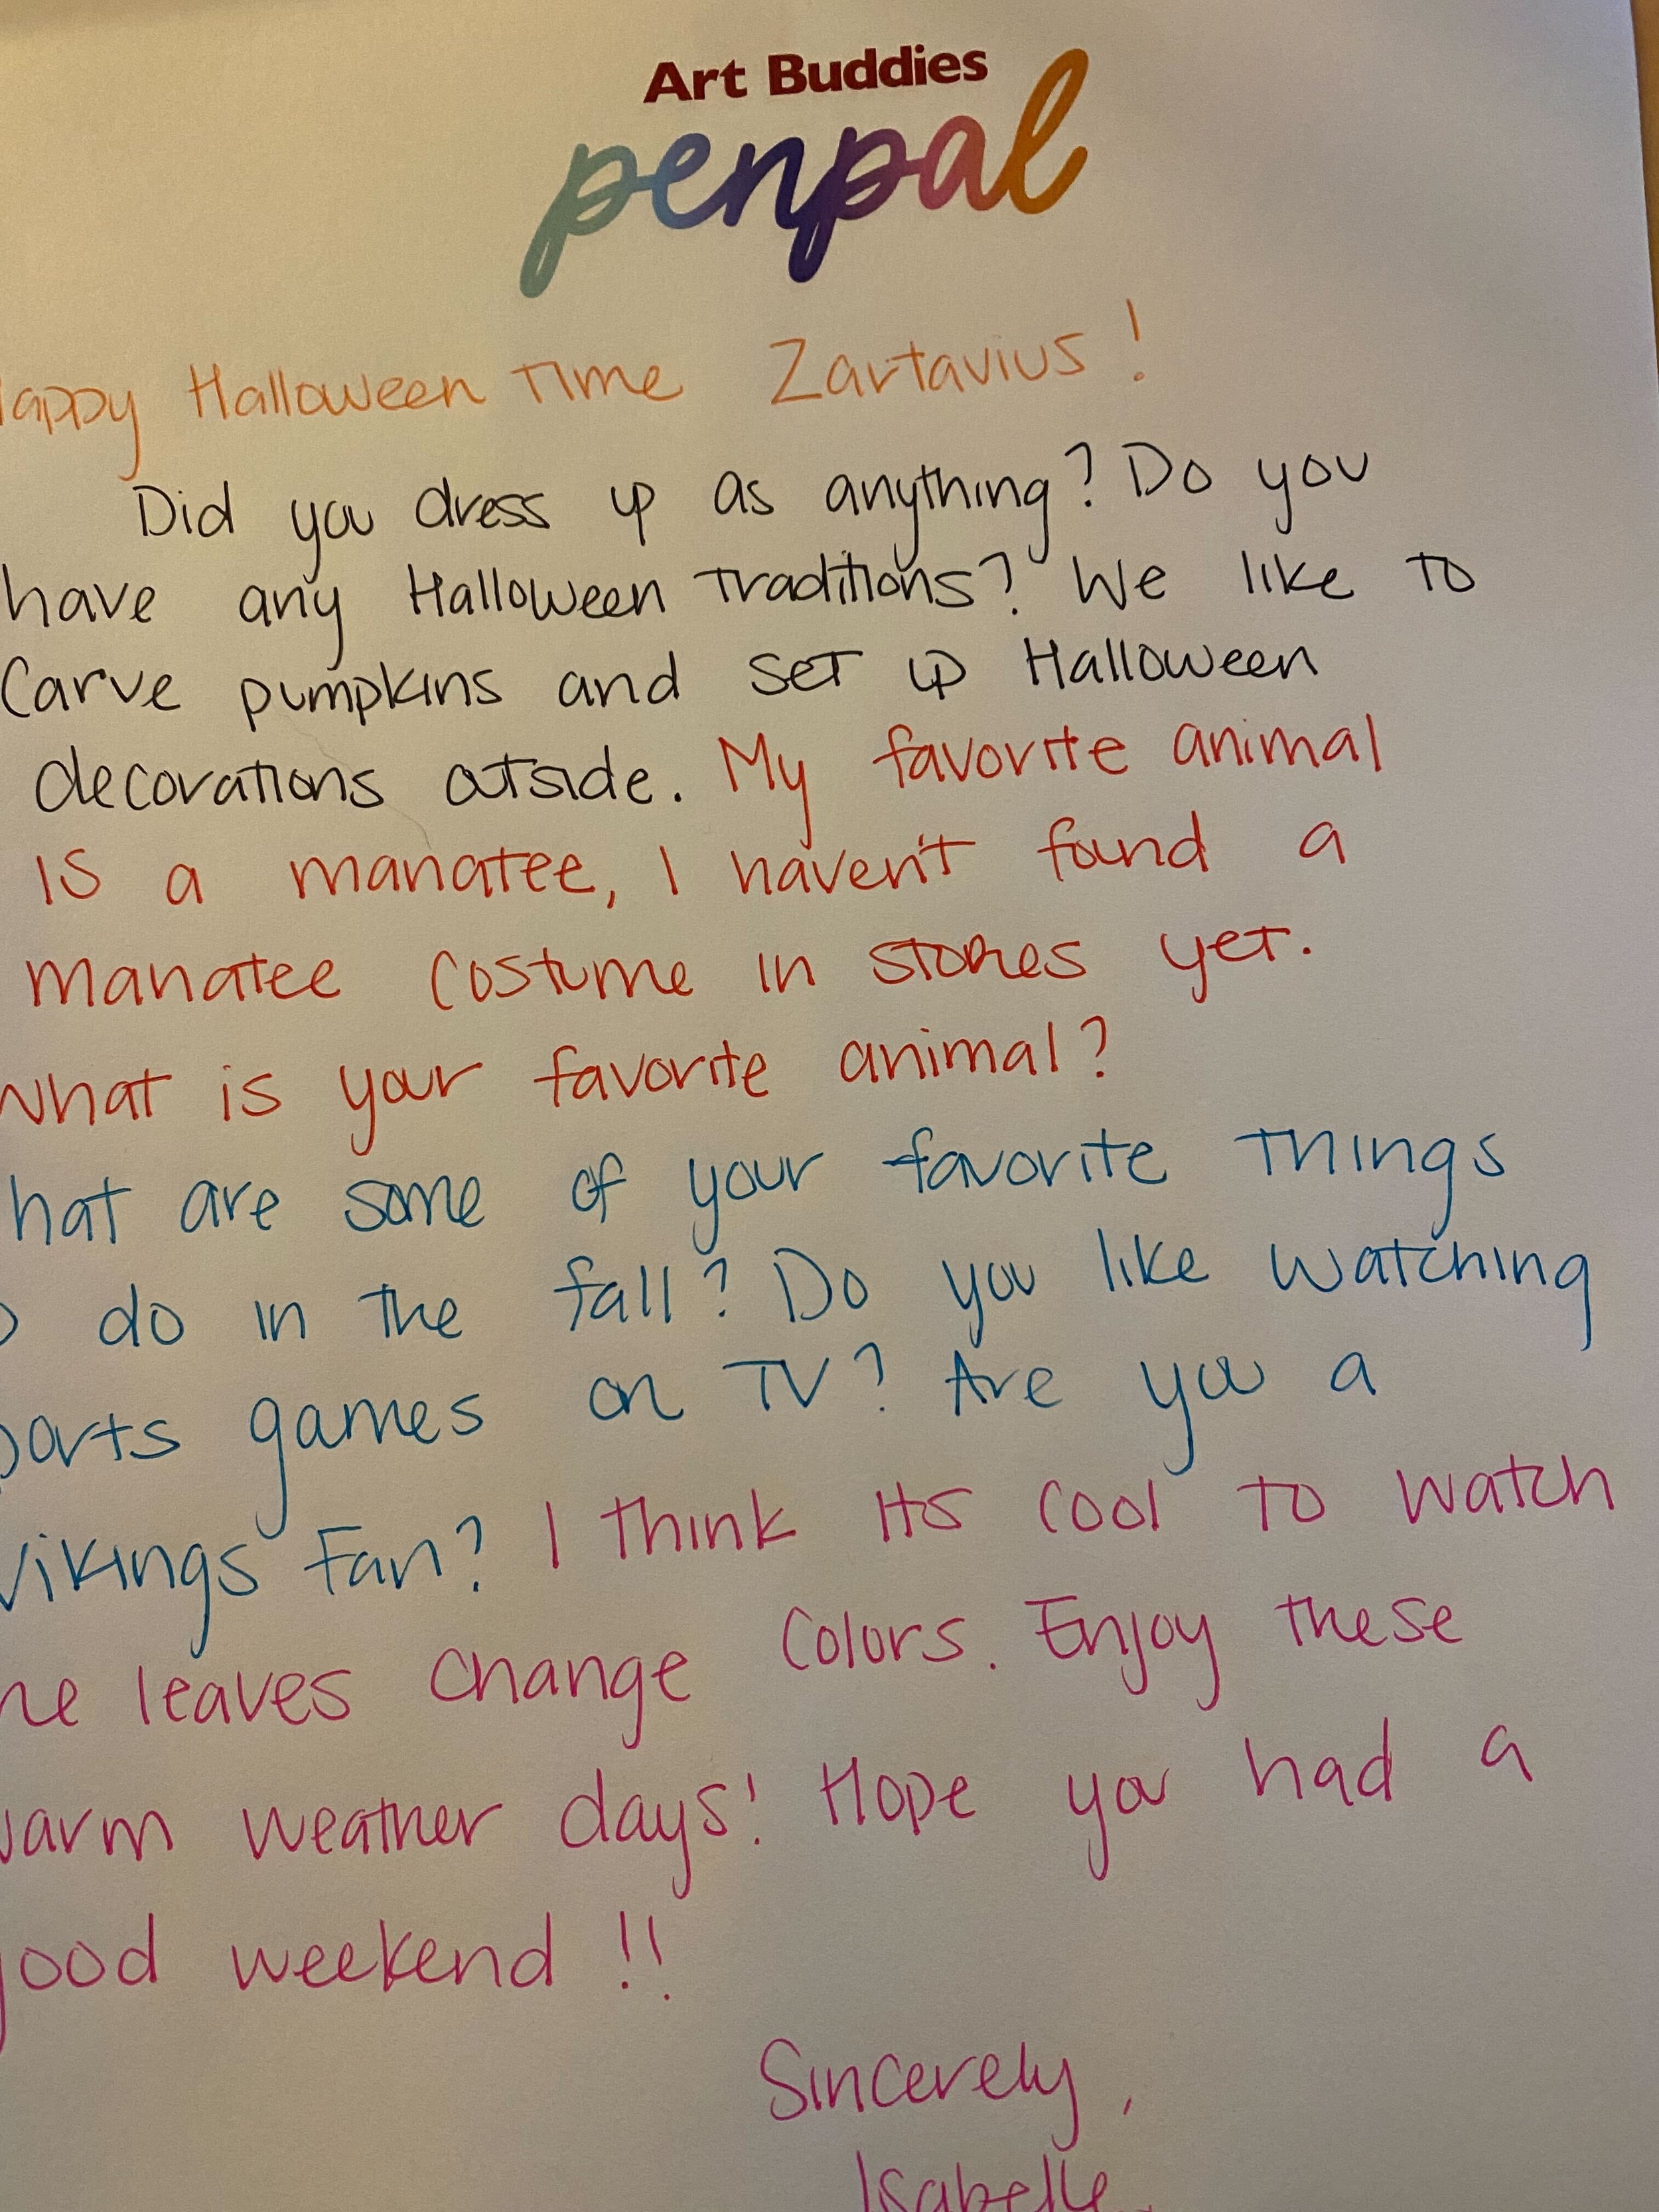 Art Buddies
penpal
Happy Halloween Time Zartavius!
Did you dress up as anything? Do you
have any Halloween Traditions? We like to
Carve pumpkins and set up Halloween
decorations outside. My favorite animal
is a manatee, I haven't found a
manatee costume in stores yet.
What is your favorite animal?
hat are some of your favorite things
o do in the fall? Do you like watching
ports games on TV? Are you a
Vikings Fan? I think its cool to watch
he leaves change Colors. Enjoy these
warm weather days! Hope you had a
good weekend!!
Sincerely,
Isabelle